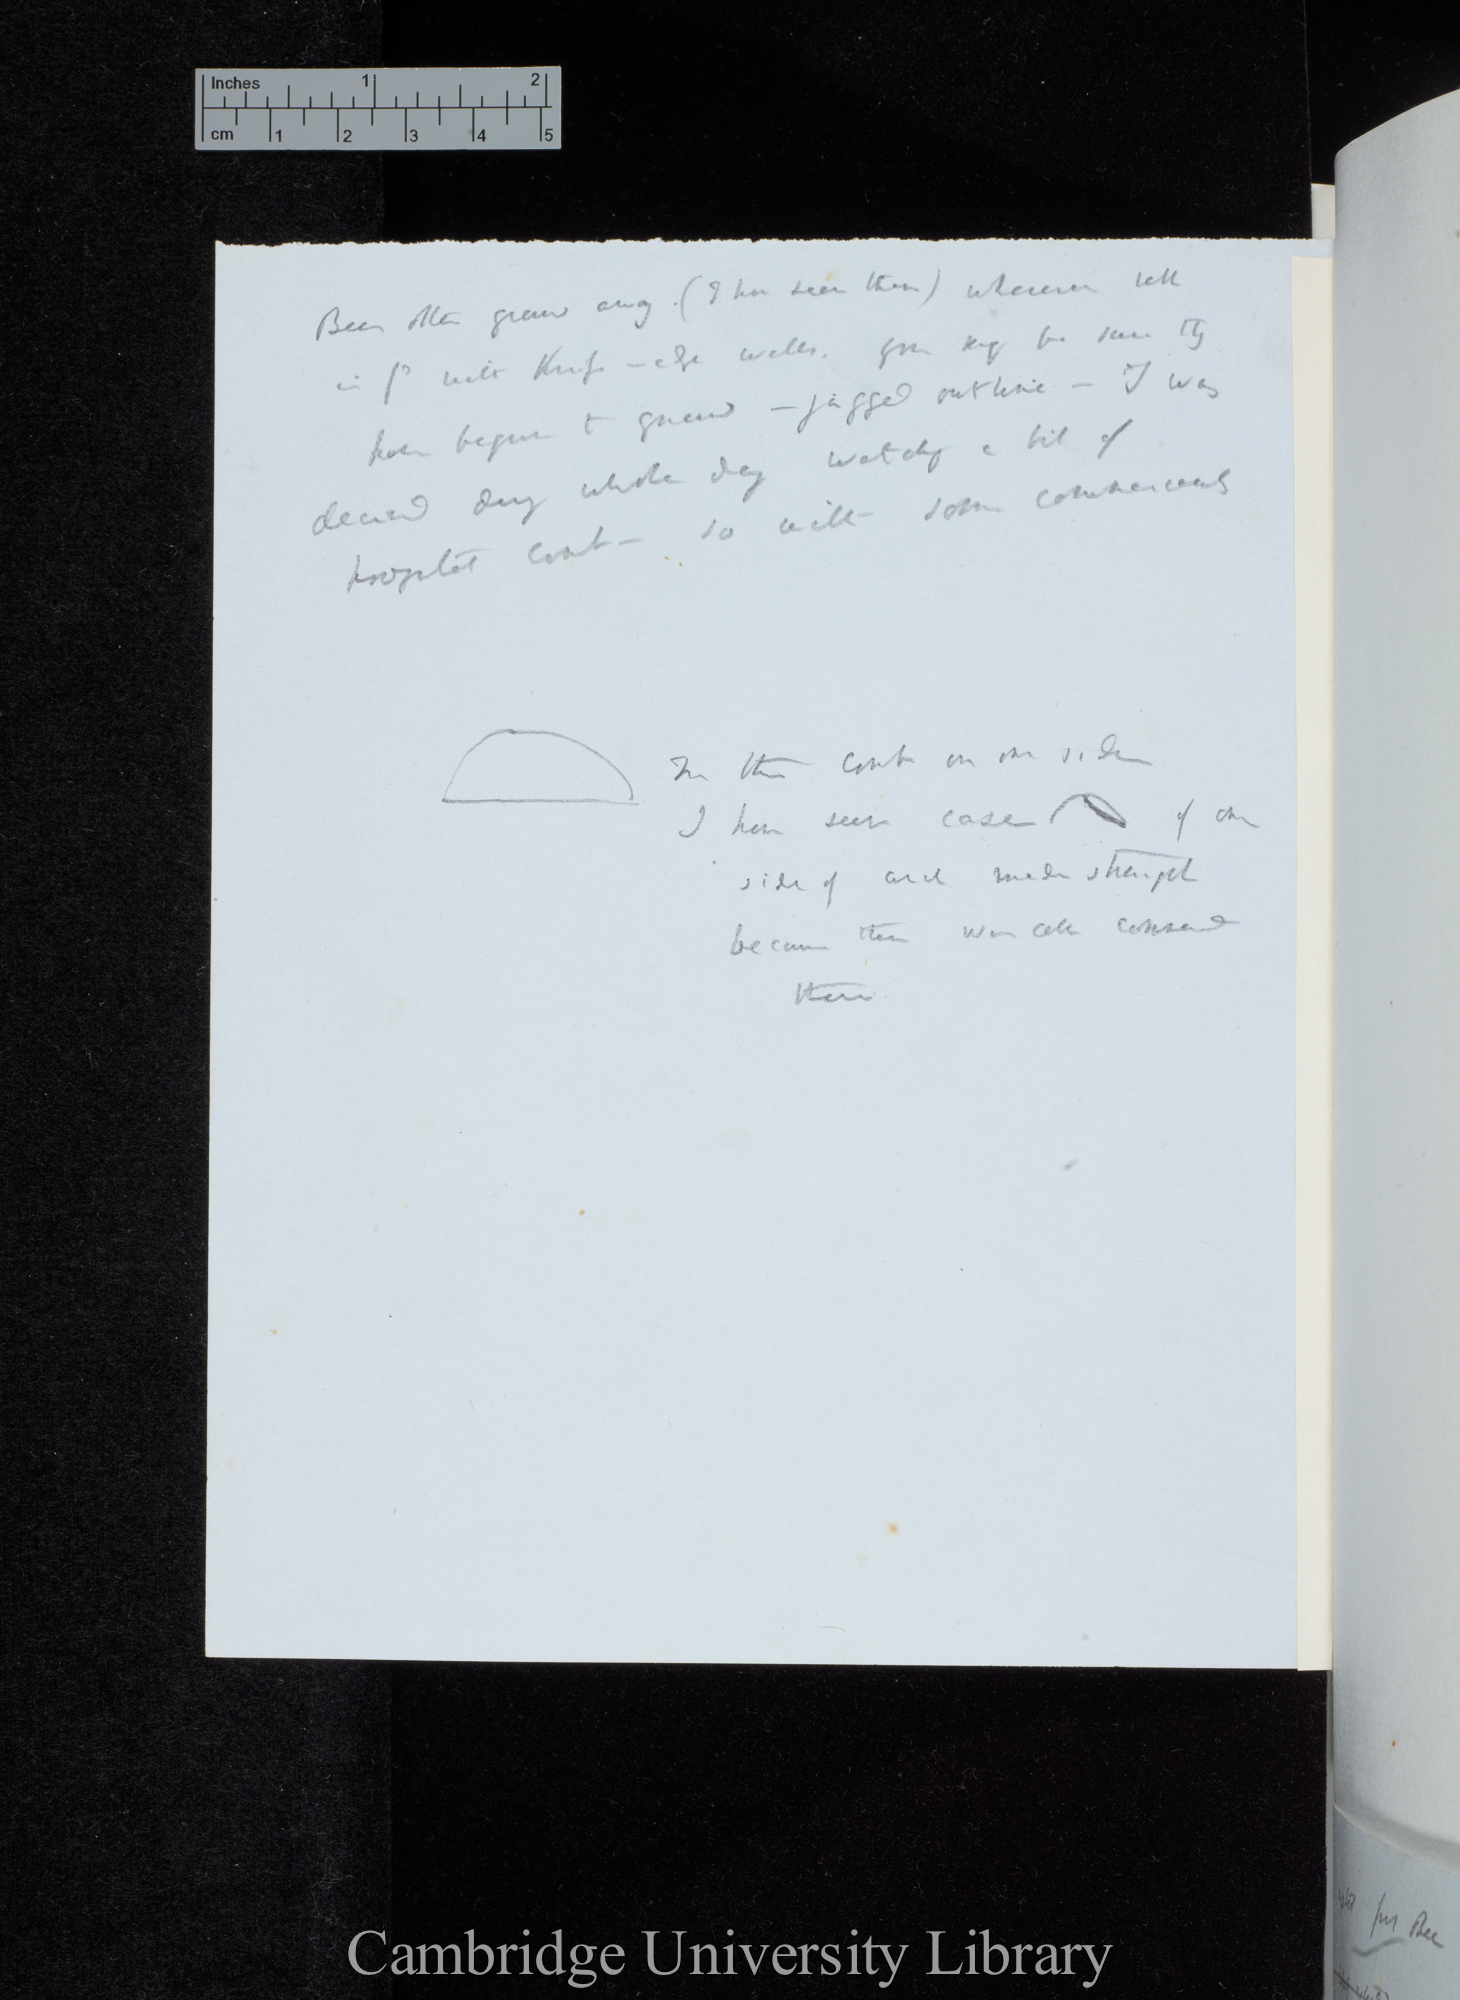 Inches 1 2
cm 1 2 3 4 5
Bees often gnaw away (I have seen them) wherever cell
in with Knife-edge walls. You may be sure they
have begun to gnaw — jagged outline — I was
deceived day whole day watching a bit of
comb — so with some commencements
In this comb on one side
I have seen case of one
side of arch made straight
because there was cell commenced
there.
for Bee
Cambridge University Library